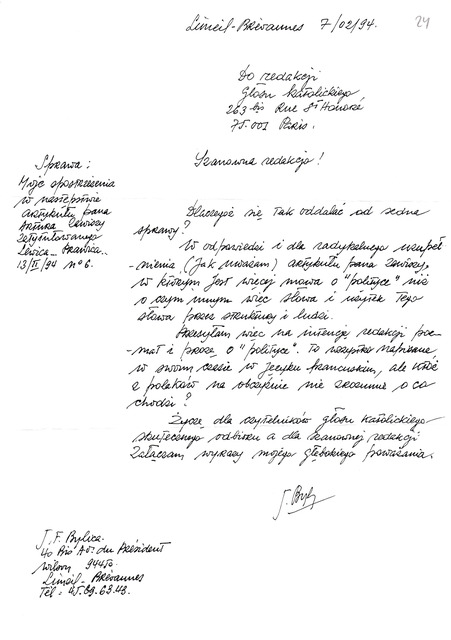 Limeil-Brévannes 7/02/94.
24
Do redakcji
Głosu Katolickiego
263-bis Rue St Honoré
75.001 Paris.
Szanowna redakcjo!
Sprawa:
Moje spostrzeżenia
w następstwie
artykułu pana
zatytułowanego
Lewica - Prawica.
13/II/94 n° 6.
Dlaczegóż się tak oddalać od sedna
sprawy?
W odpowiedzi i dla radykalnego uzupeł
-nienia (jak uważam) artykułu pana
w którym jest więcej mowa o "polityce" niż
o czym innym więc słowa i użytek tego
słowa przez struktury i ludzi.
Przesyłam więc na intencję redakcji poe-
mat i prozę o "polityce". To wszystko napisane
w swoim czasie w języku francuskim, ale któż
z polaków na obczyźnie nie zrozumie o co
chodzi?
Życzę dla czytelników głosu Katolickiego
skutecznego odbioru a dla szanownej redakcji
załączam wyrazy mojego głębokiego poważania.
J. F. Bylica.
40 Bis Av. du Président
Wilson 94450.
Limeil-Brévannes
Tél: 45.69.63.43.